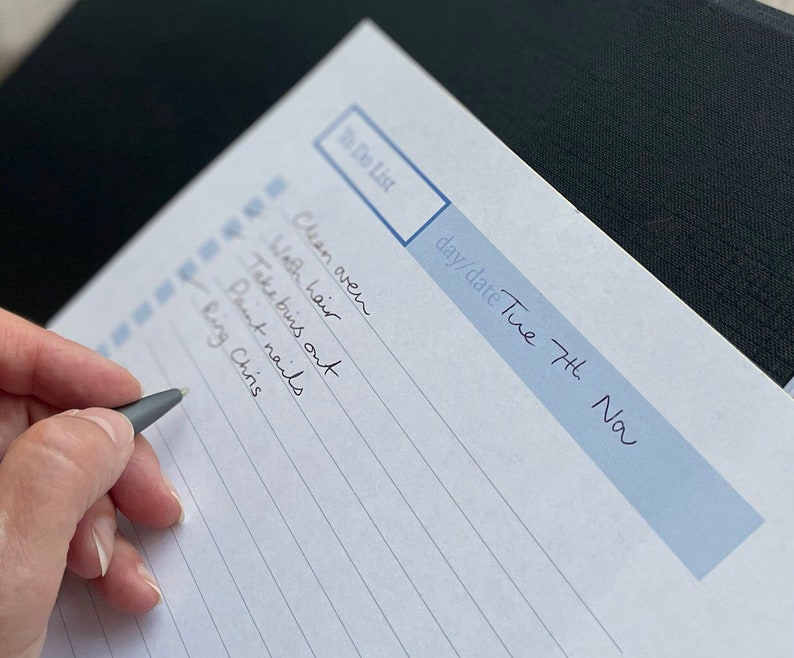 To Do List
day/date Tue 7th Nov
Clean oven
Wash hair
Take bins out
Paint nails
Ring Chris